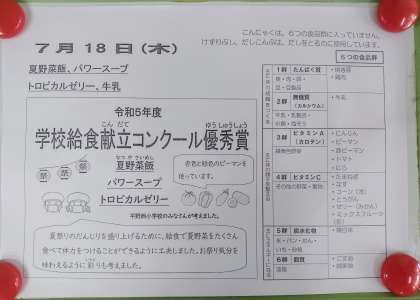 こんにゃくは、6つの食品群に入っていません。
けずりぶし、だしこんぶは、だしをとるのに使用しています。
7月18日(木)
夏野菜飯、パワースープ
トロピカルゼリー、牛乳
令和5年度
こんだて
ゆうしゅうしょう
学校給食献立コンクール優秀賞
なつやさいめし
夏野菜飯
パワースープ
トロピカルゼリー
祭
祭
祭
赤色と緑色のピーマンを
使っています。
夏祭りのだんじりを盛り上げるために、給食で夏野菜をたくさん
食べて体力をつけることができるように工夫しました。お祭り気分を
味わえるように彩りも考えました。
6つの食品群
1群 たんぱく質
魚・肉・卵・
豆・豆製品
・焼き豚
・鶏肉
2群 無機質
(カルシウム)
牛乳・乳製品・
小魚・海そう
・牛乳
3群 ビタミンA
(カロテン)
緑黄色野菜
・にんじん
・ピーマン
・赤ピーマン
・トマト
・にら
4群 ビタミンC
その他の野菜・果物
・たまねぎ
・なす
・コーン(冷)
・とうがん
・ゼリー(みかん)
・ミックスフルーツ
(缶)
5群 炭水化物
米・パン・めん・
いも・砂糖
・精白米
6群 脂質
油脂
・ごま油
・綿実油